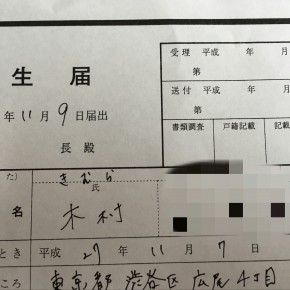 生届
年11月9日届出
長殿
受理 平成 年 月
第
送付 平成 年 月
第
書類調査 戸籍記載 記載
た)
きむら
氏
名
木村
とき 平成 27年 11月 7日
ころ 東京都 渋谷区 広尾 4丁目